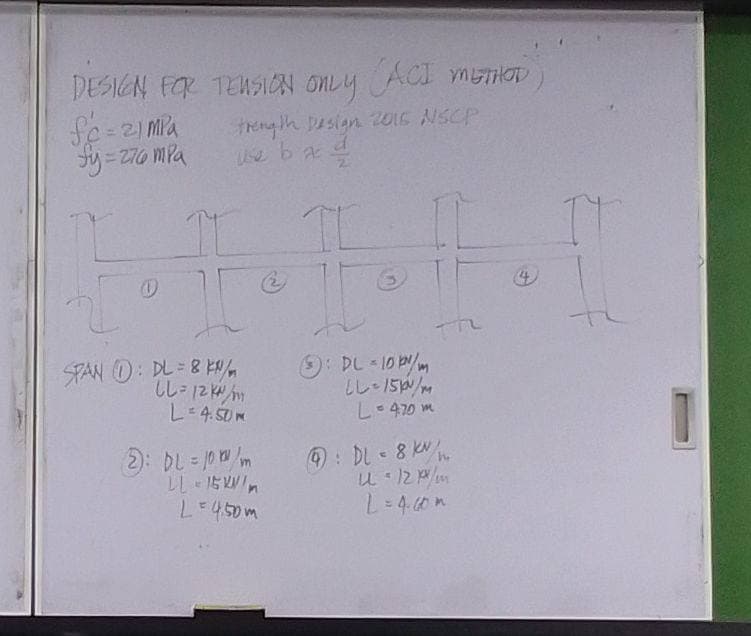 DESIGN FOR TENSION ONLY (ACI METHOD)
f'c = 21 MPa
trength Design 2015 NSCP
fy = 276 MPa
use b ≈ d/2
① ② ③ ④
SPAN ①: DL = 8 KN/m
LL = 12 KN/m
L = 4.50 m
③: DL = 10 KN/m
LL = 15 KN/m
L = 4.70 m
②: DL = 10 KN/m
LL = 15 KN/m
L = 4.50 m
④: DL = 8 KN/m
LL = 12 KN/m
L = 4.60 m